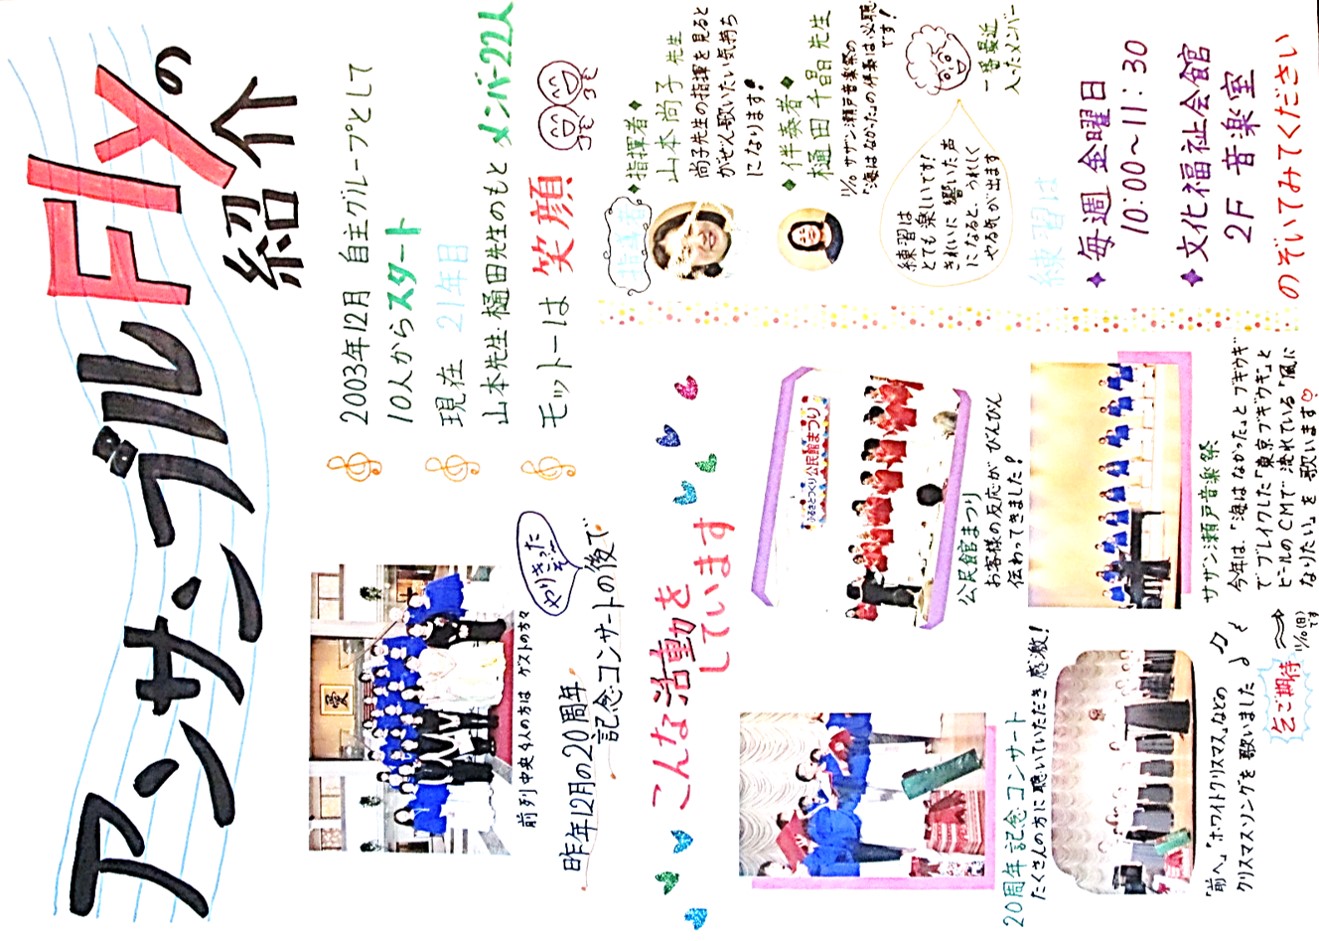 アンサンブルFlyの
紹介
2003年12月 自主グループとして
10人からスタート
現在 21年目
山本先生・樋田先生のもと メンバー22人
モットーは 笑顔
やりきったぞー
前列中央4人の方は ゲストの方々
昨年12月の20周年
記念コンサートの後で
指導者
◆指揮者◆
山本尚子 先生
尚子先生の指揮を見ると
がぜん歌いたい気持ち
になります!
◆伴奏者◆
樋田千晶 先生
11/10 サザン瀬戸音楽祭の
「海はなかった」の伴奏は必聴
です!
練習は
とても楽しいです!
きれいに響いた声
になると、うれしく
やる気が出ます
一番最近
入ったメンバー
練習は
毎週 金曜日
10:00〜11:30
文化福祉会館
2F 音楽室
のぞいてみてください
こんな活動を
しています
ふるさとつくり公民館まつり
公民館まつり
お客様の反応が びんびん
伝わってきました!
20周年記念コンサート
たくさんの方に聴いていただき 感激!
「前へ」「ホワイトクリスマス」などの
クリスマスソングを 歌いました
サザン瀬戸音楽祭
今年は、「海はなかった」と ブギウギ
でブレイクした「東京ブギウギ」と
ビールのCMで 流れている「風に
なりたい」を 歌います♡
乞ご期待
11/10(日)
です